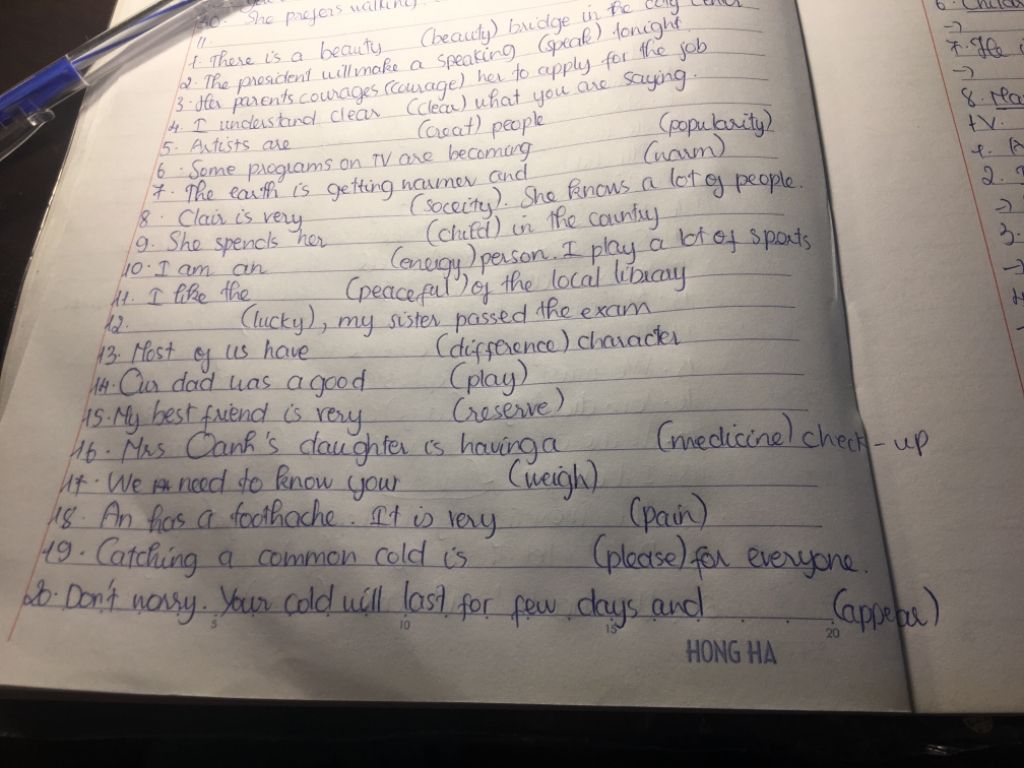 10. She prefers walking.
II.
1. There is a beauty (beauty) bridge in the city center
2. The president will make a speaking (speak) tonight.
3. Her parents courages (courage) her to apply for the job
4. I understand clear (clear) what you are saying.
5. Artists are (creat) people
6. Some programs on TV are becoming (popularity)
7. The earth is getting warmer and (warm)
8. Clair is very (soceity). She knows a lot of people.
9. She spends her (child) in the country
10. I am an (energy) person. I play a lot of sports
11. I like the (peaceful) of the local library
12. (lucky), my sister passed the exam
13. Most of us have (difference) character
14. Our dad was a good (play)
15. My best friend is very (reserve)
16. Mrs Oanh's daughter is having a (medicine) check-up
17. We need to know your (weigh)
18. An has a toothache. It is very (pain)
19. Catching a common cold is (please) for everyone.
20. Don't worry. Your cold will last for few days and (appear)
5 10 15 20
HONG HA
6.
→
7. He
→
8.
TV.
1.
2.
→
3.
→